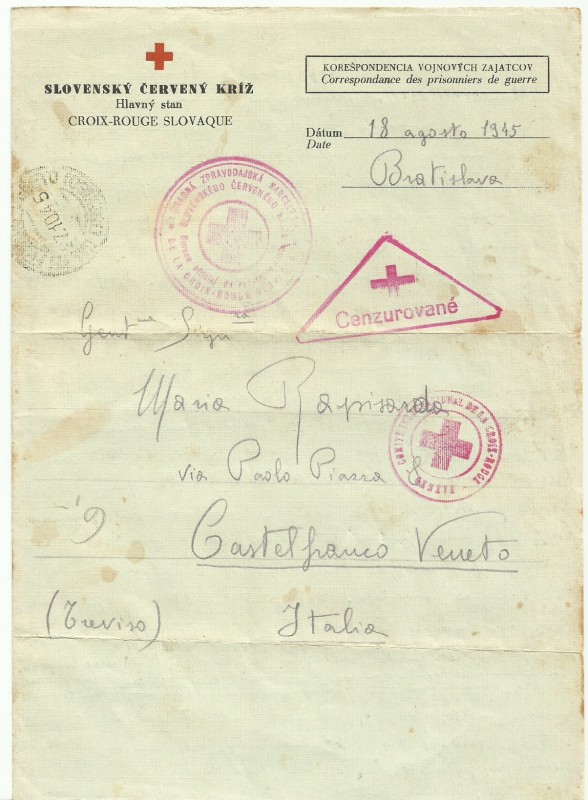 SLOVENSKÝ ČERVENÝ KRÍŽ
Hlavný stan
CROIX-ROUGE SLOVAQUE
KOREŠPONDENCIA VOJNOVÝCH ZAJATCOV
Correspondance des prisonniers de guerre
Dátum 18 agosto 1945
Date
Bratislava
ZPRAVODAJSKÁ
SLOVENSKÉHO ČERVENÉHO
DE LA CROIX-ROUGE
27.10.45
Cenzurované
Gent.me Sign.ra
Maria Rapisarda
COMITÉ INTERNATIONAL DE LA CROIX-ROUGE
GENÈVE
Via Paolo Piazza
9
Castelfranco Veneto
(Treviso) Italia